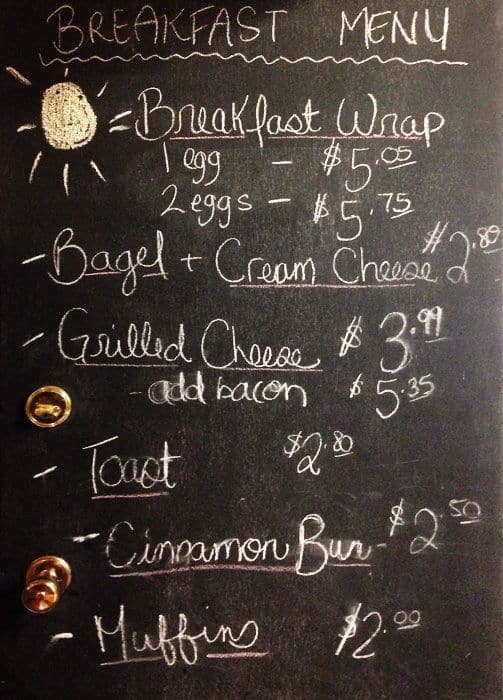 BREAKFAST MENU
- Breakfast Wrap
1 egg - $5.05
2 eggs - $5.75
- Bagel + Cream Cheese $2.80
- Grilled Cheese $3.99
- add bacon $5.35
- Toast $2.80
- Cinnamon Bun - $2.50
- Muffins $2.00